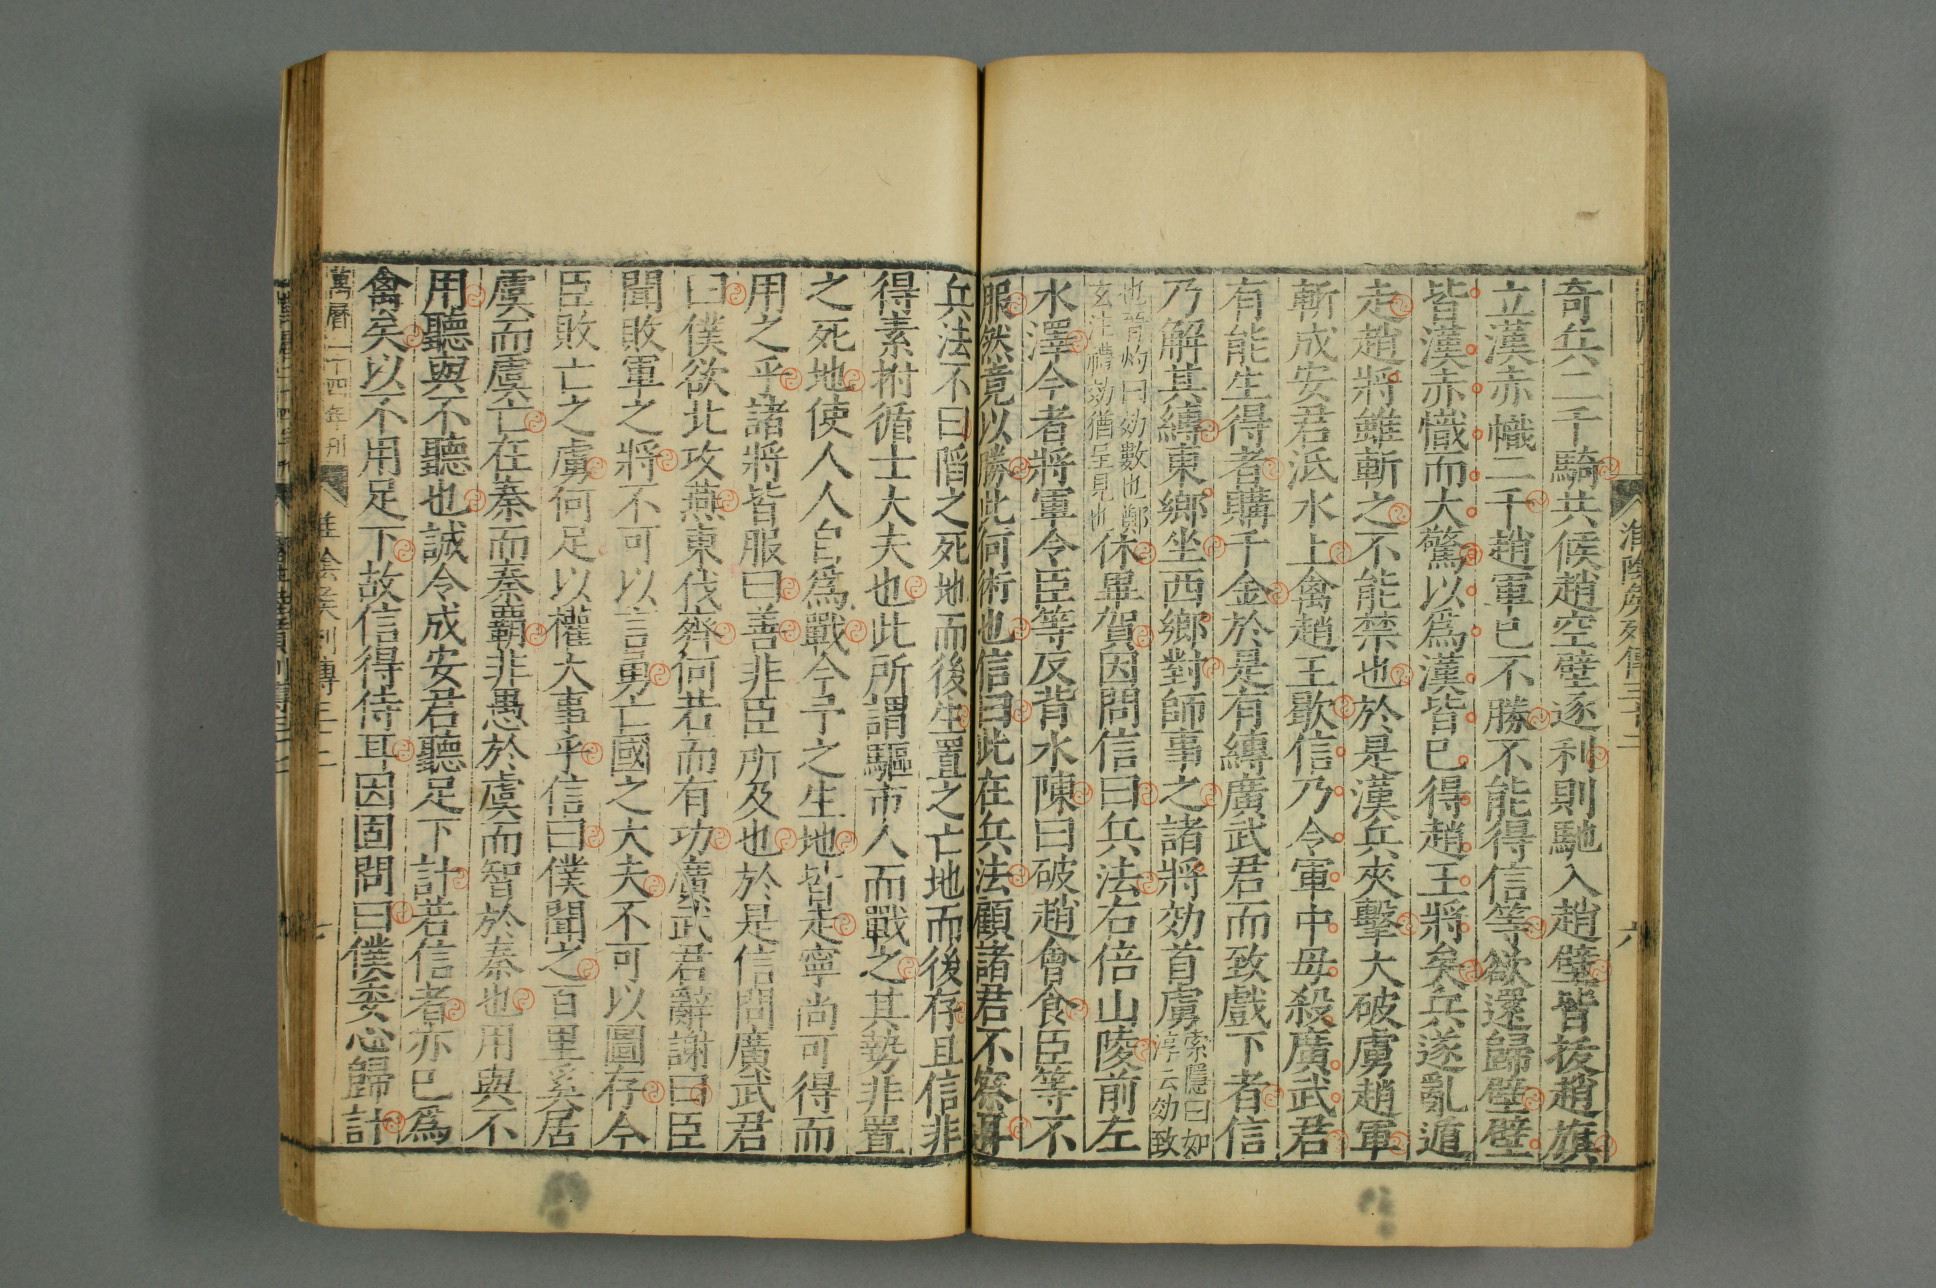 淮陰矦列傳三十二
六
奇兵二千騎共候趙空壁逐利則馳入趙壁皆拔趙旗
立漢赤幟二千趙軍已不勝不能得信等欲還歸壁壁
皆漢赤幟而大驚以爲漢皆已得趙王將矣兵遂亂遁
走趙將雖斬之不能禁也於是漢兵夾擊大破虜趙軍
斬成安君泜水上禽趙王歇信乃令軍中毋殺廣武君
有能生得者購千金於是有縛廣武君而致戲下者信
乃解其縛東鄉坐西鄉對師事之諸將効首虜索隱曰如淳云効致
也晉灼曰効數也鄭玄注禮効猶呈見也休畢賀因問信曰兵法右倍山陵前左
水澤今者將軍令臣等反背水陳曰破趙會食臣等不
服然竟以勝此何術也信曰此在兵法顧諸君不察耳
兵法不曰陷之死地而後生置之亡地而後存且信非
得素拊循士大夫也此所謂驅市人而戰之其勢非置
之死地使人人自爲戰今予之生地皆走寧尚可得而
用之乎諸將皆服曰善非臣所及也於是信問廣武君
曰僕欲北攻燕東伐齊何若而有功廣武君辭謝曰臣
聞敗軍之將不可以言勇亡國之大夫不可以圖存今
臣敗亡之虜何足以權大事乎信曰僕聞之百里奚居
虞而虞亡在秦而秦霸非愚於虞而智於秦也用與不
用聽與不聽也誠令成安君聽足下計若信者亦已爲
禽矣以不用足下故信得侍耳因固問曰僕委心歸計
萬曆二十四年刊
淮陰矦列傳三十二
七